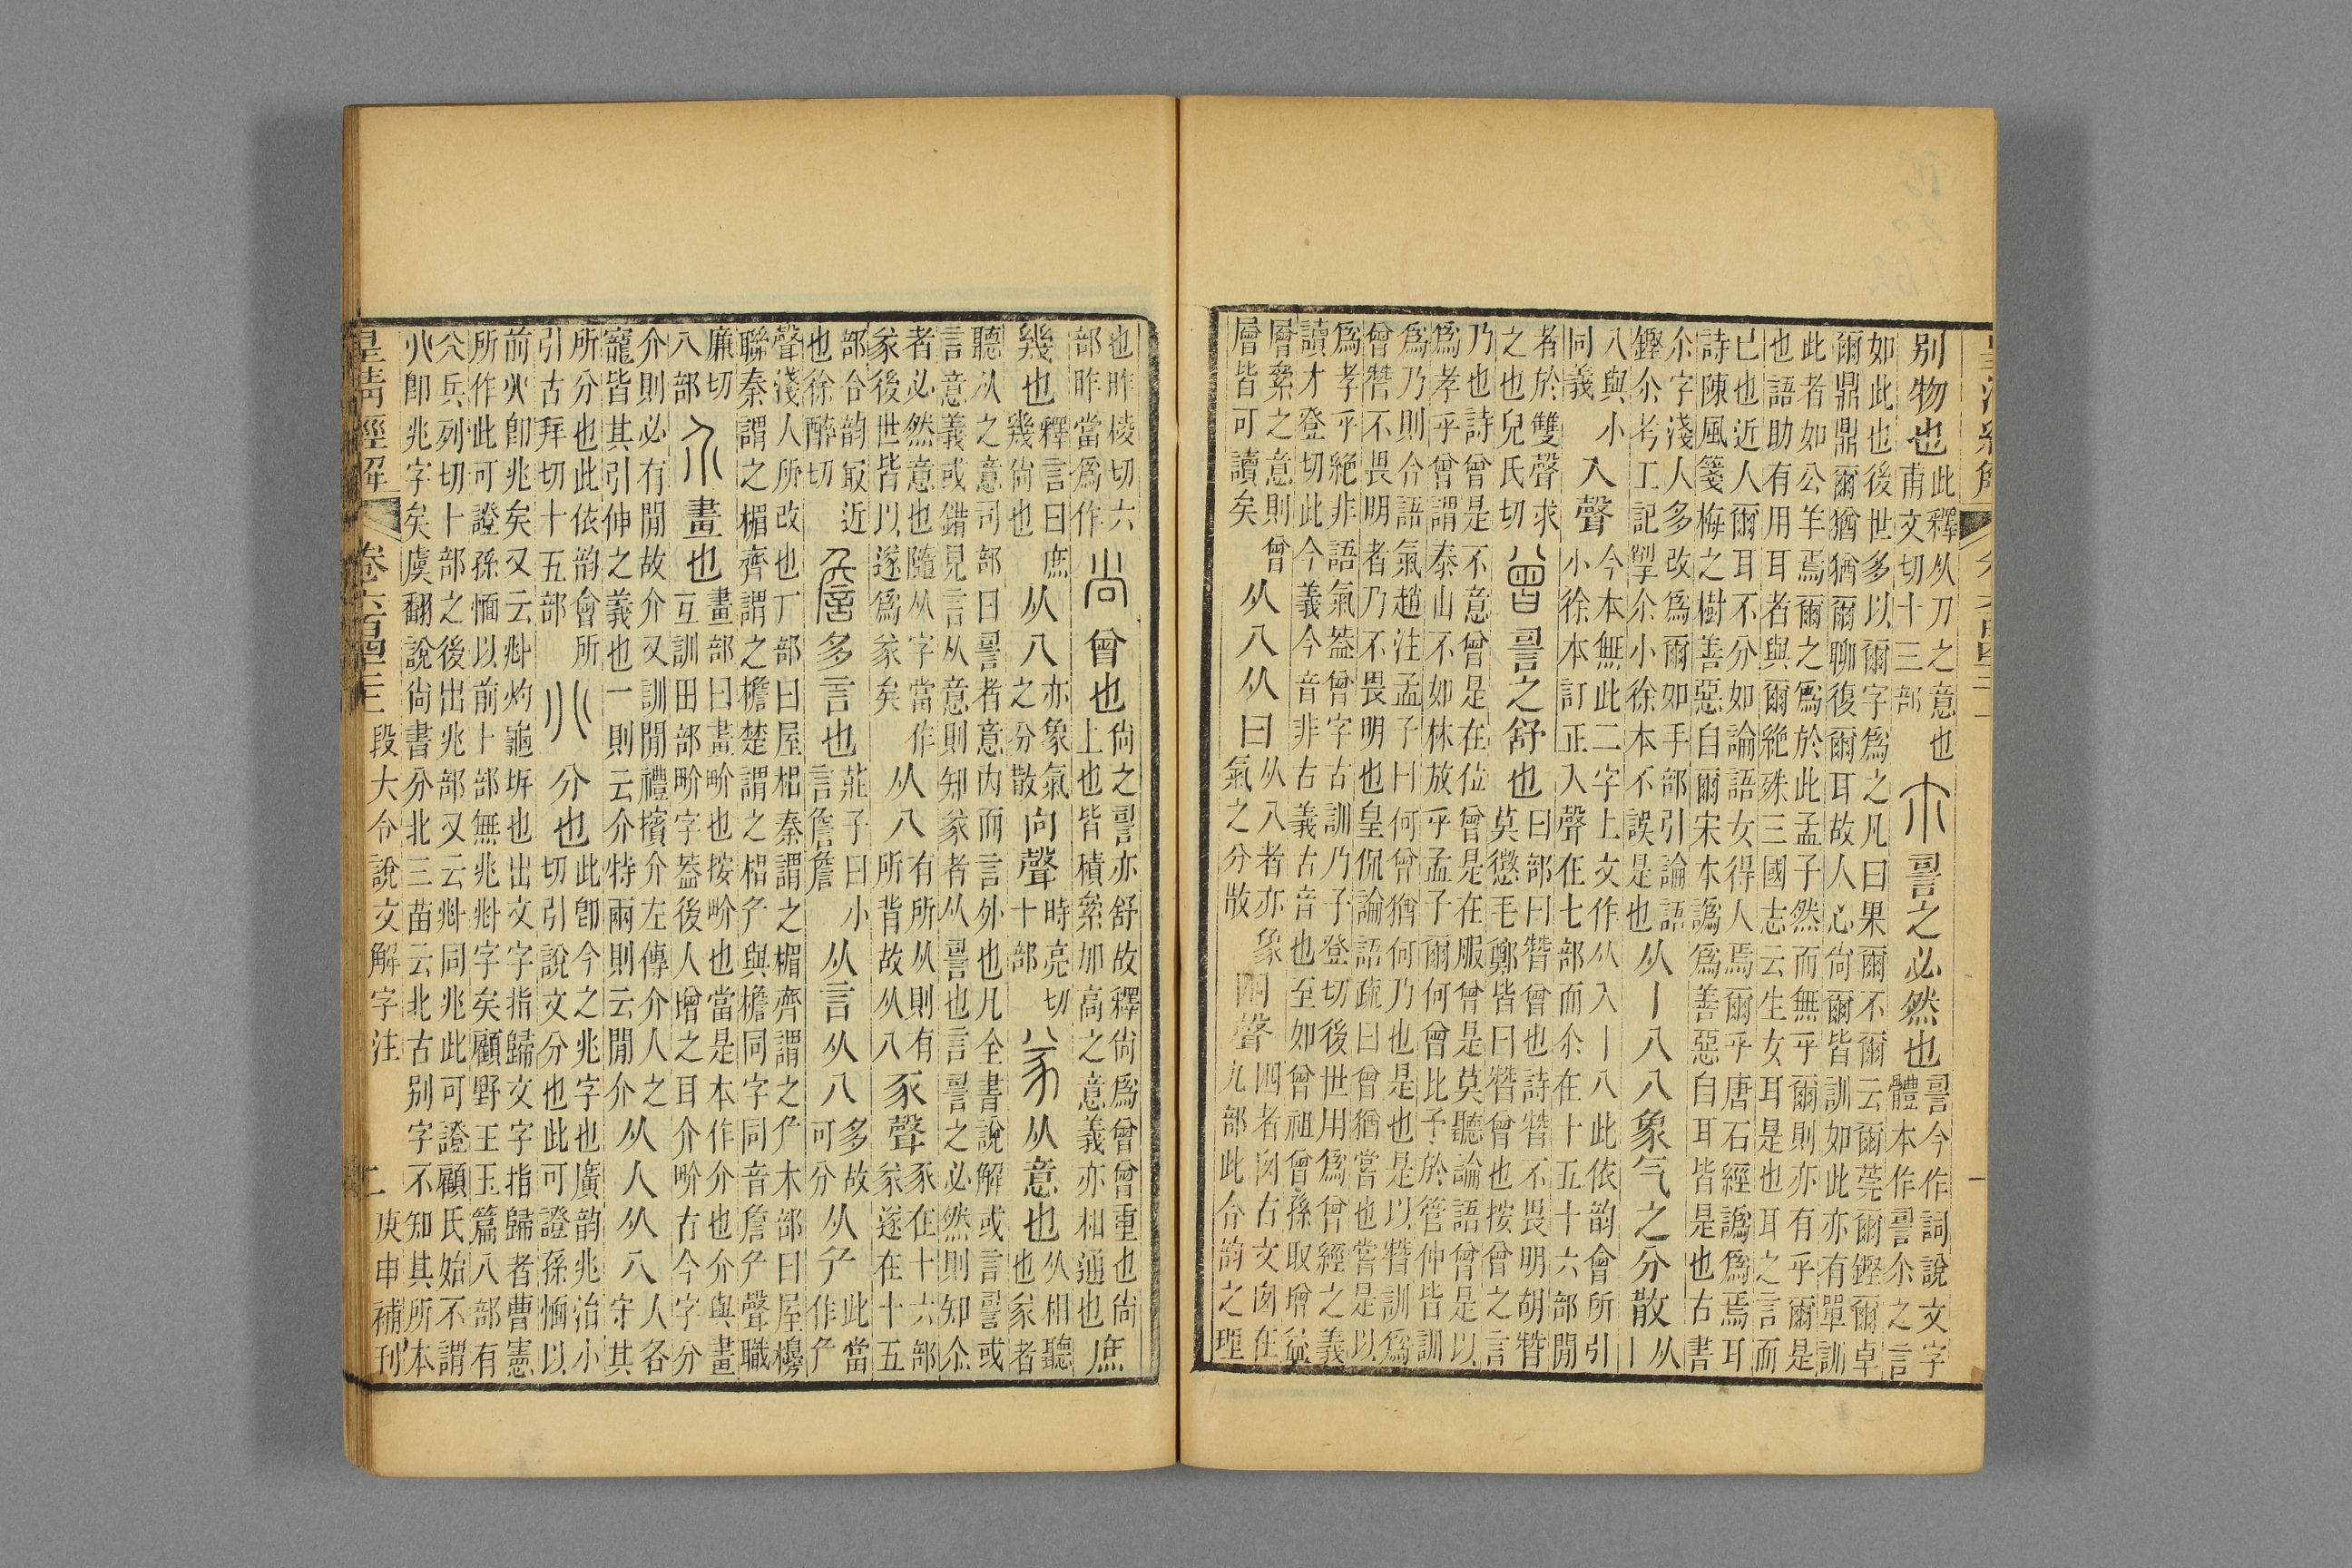 别物也此釋从刀之意也甫文切十三部尒䛐之必然也䛐今作詞說文字體本作䛐尒之言
如此也後世多以爾字爲之凡曰果爾不爾云爾莞爾鏗爾卓
爾鼎鼎爾猶猶爾聊復爾耳故人心尙爾皆訓如此亦有單訓
此者如公羊焉爾之爲於此孟子然而無乎爾則亦有乎爾是
也語助有用耳者與爾絶殊三國志云生女耳是也耳之言而
已也近人爾耳不分如論語女得人焉爾乎唐石經譌爲焉耳
詩陳風箋梅之樹善惡自爾宋本譌爲善惡自耳皆是也古書
尒字淺人多改爲爾如手部引論語鏗尒考工記掣尒小徐本不誤是也从丨八八象气之分散从丨
八與小同義入聲今本無此二字上文作从入丨八此依韵會所引小徐本訂正入聲在七部而尒在十五十六部閒
者於雙聲求之也兒氏切曾䛐之舒也曰部曰朁曾也詩朁不畏明胡朁莫懲毛鄭皆曰朁曾也按曾之言
乃也詩曾是不意曾是在位曾是在服曾是莫聽論語曾是以
爲孝乎曾謂泰山不如林放乎孟子爾何曾比予於管仲皆訓
爲乃則合語氣趙注孟子曰何曾猶何乃也是也是以朁訓爲
曾朁不畏明者乃不畏明也皇侃論語疏曰曾猶嘗也嘗是以
爲孝乎絶非語氣葢曾字古訓乃子登切後世用爲曾經之義
讀才登切此今義今音非古義古音也至如曾祖曾孫取增益
層絫之意則曾層皆可讀矣从八从曰从八者亦象氣之分散囪聲四者囪古文囪在九部此合韵之理
也昨棱切六部昨當爲作尚曾也尙之䛐亦舒故釋尙爲曾曾重也尙上也皆積絫加高之意義亦相通也庶
幾也釋言曰庶幾尙也从八亦象氣之分散向聲時亮切十部㒸从意也从相聽也㒸者
聽从之意司部曰䛐者意內而言外也凡全書說解或言䛐或
言意義或錯見言从意則知㒸者从䛐也言䛐之必然則知尒
者必然意也隨从字當作㒸後世皆以遂爲㒸矣从八有所从則有所背故从八豕聲豕在十六部㒸遂在十五
部合韵冣近也徐醉切詹多言也莊子曰小言詹詹从言从八多故可分从厃此當作厃
聲淺人所改也丁部曰屋梠秦謂之楣齊謂之厃木部曰屋櫋
聯秦謂之楣齊謂之檐楚謂之梠厃與檐同字同音詹厃聲職
廉切八部介畫也畫部曰畫畍也按畍也當是本作介也介與畫互訓田部畍字葢後人增之耳介畍古今字分
介則必有閒故介又訓閒禮擯介左傳介人之寵皆其引伸之義也一則云介特兩則云閒介从人从八人各守其
所分也此依韵會所引古拜切十五部𠔁分也此卽今之兆字也廣韵兆治小切引說文分也此可證孫愐以
前𠔁卽兆矣又云𠧞灼龜坼也出文字指歸文字指歸者曹憲
所作此可證孫愐以前卜部無兆𠧞字矣顧野王玉篇八部有
𠔁兵列切卜部之後出兆部又云𠧞同兆此可證顧氏始不謂
𠔁卽兆字矣虞翻說尙書分北三苗云北古别字不知其所本
皇清經解 卷六百四十二 段大令說文解字注 二 庚申補刊